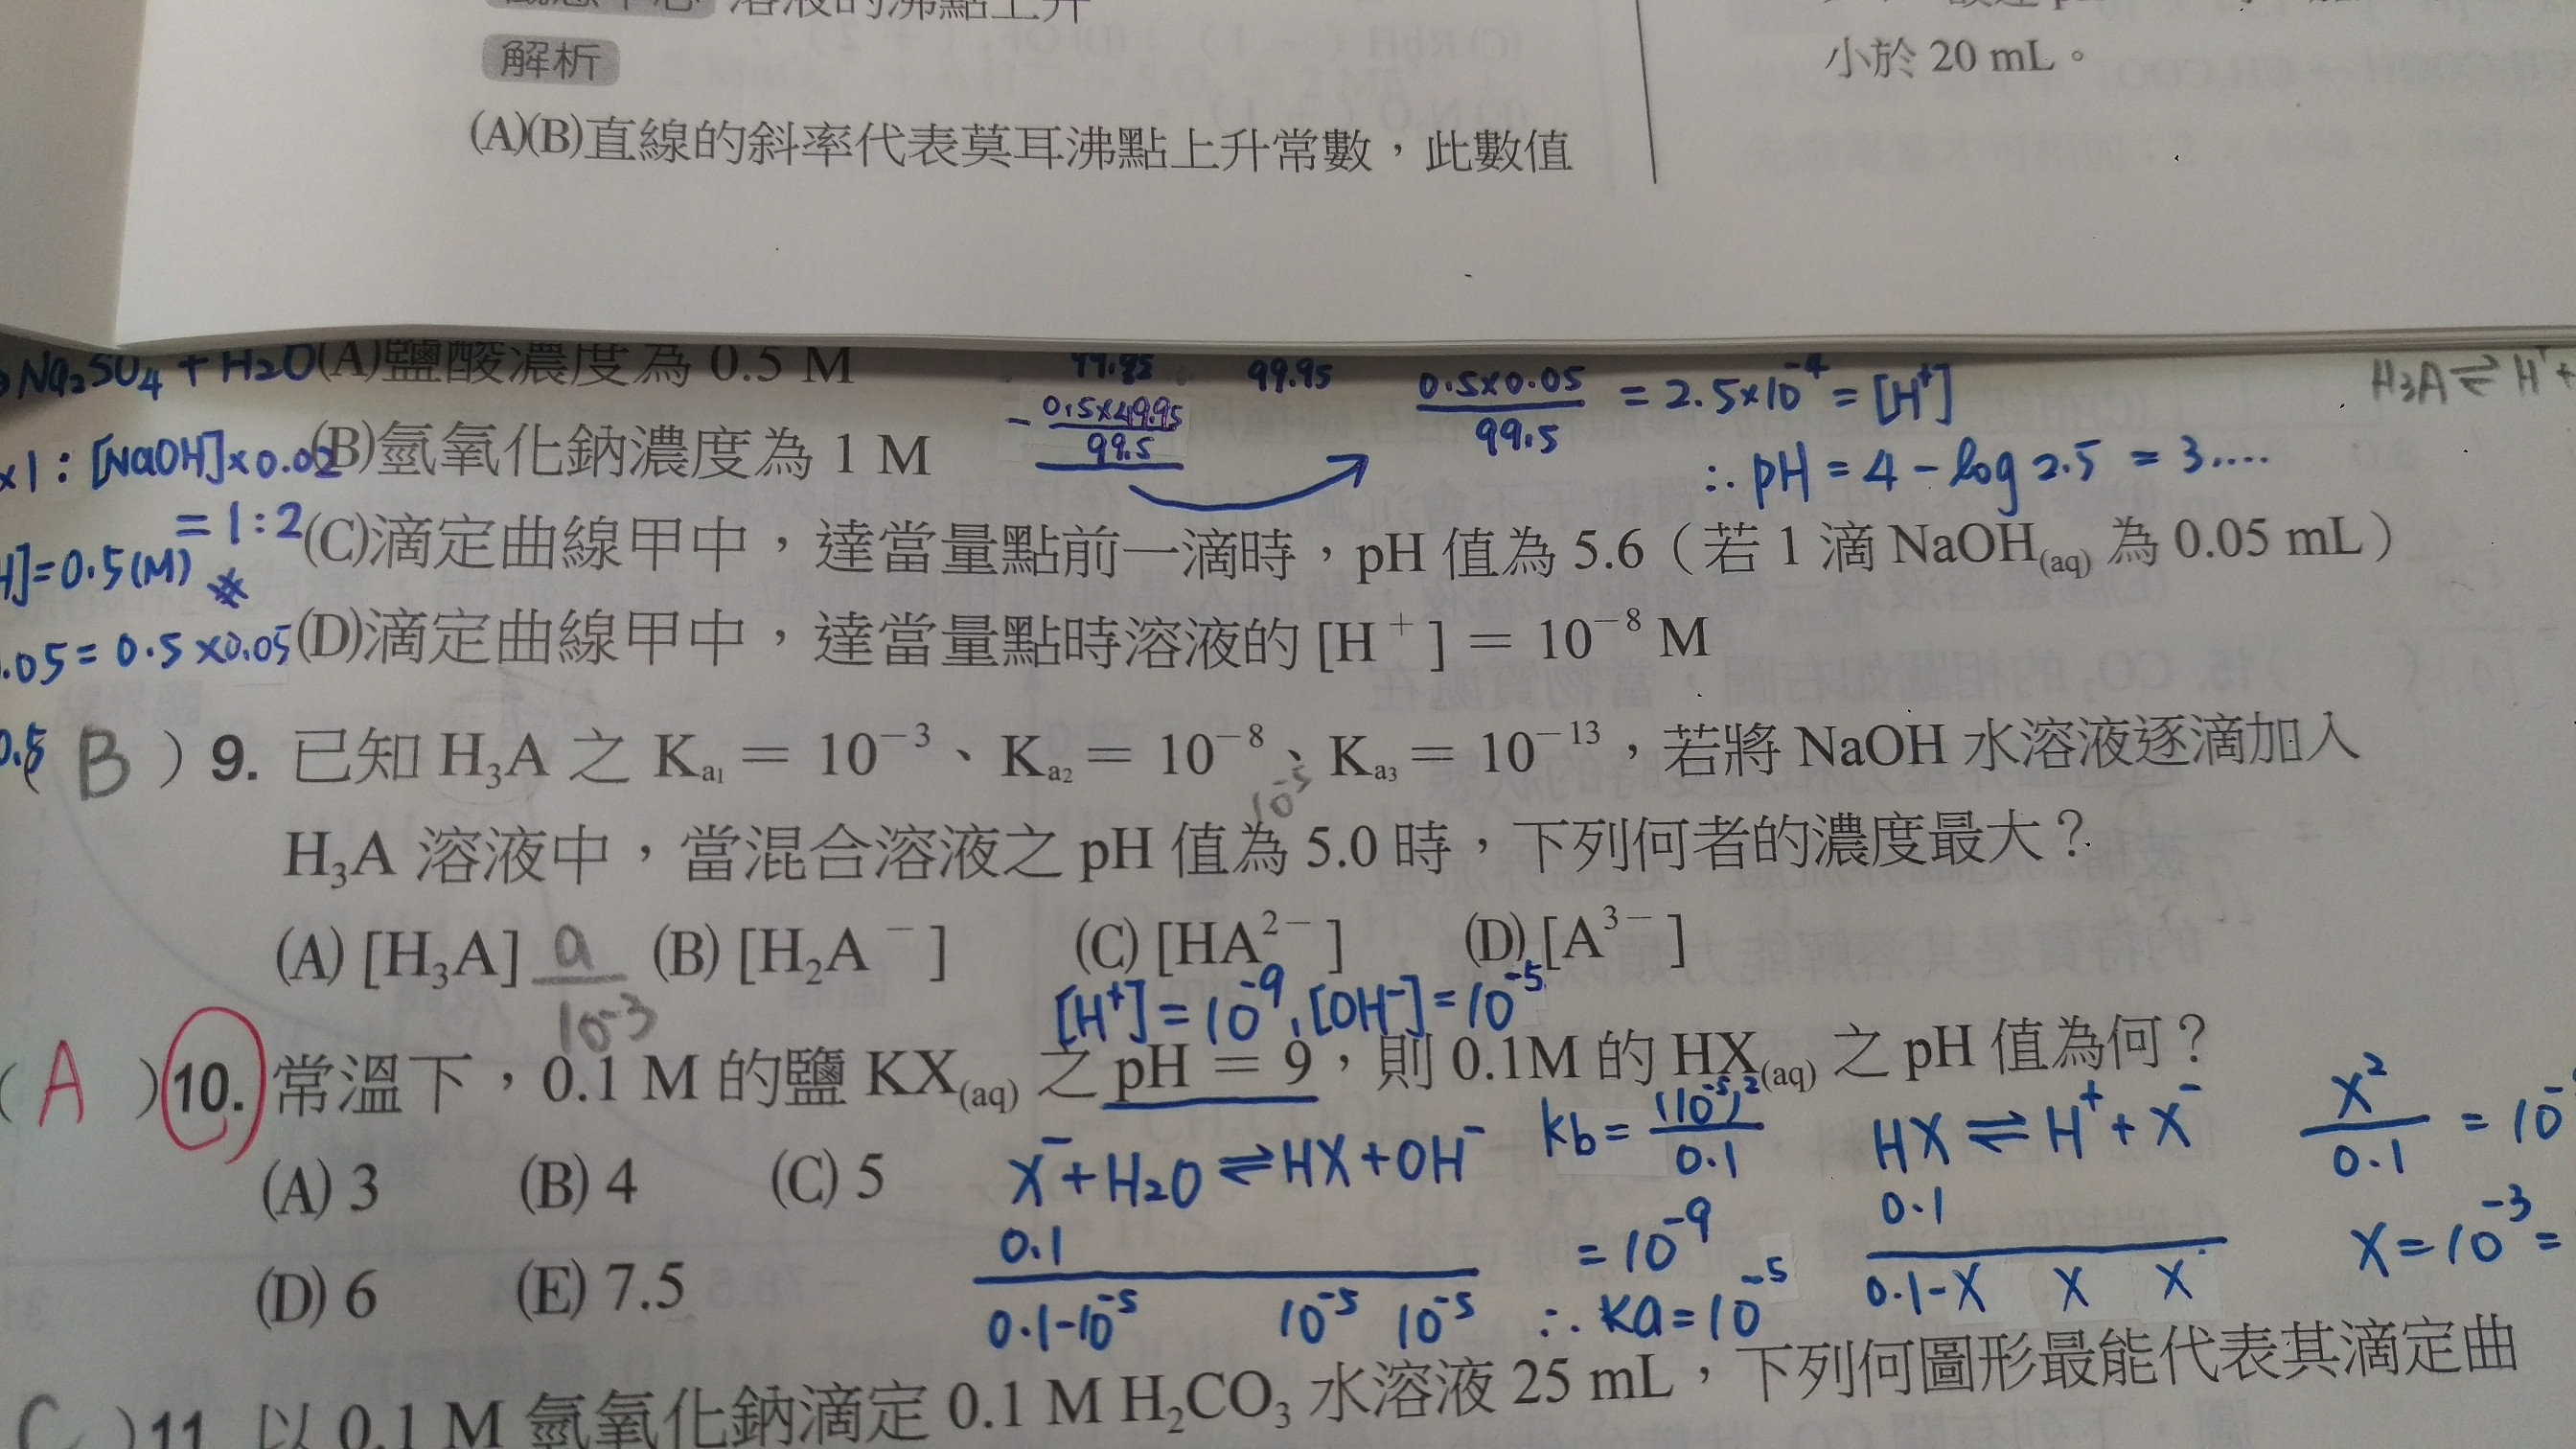 溶液的沸點上升
解析
(A)(B)直線的斜率代表莫耳沸點上升常數，此數值
小於 20 mL。
Na₂SO₄ + H₂O
(A)鹽酸濃度為 0.5 M
99.95
0.5×0.05 / 99.5 = 2.5×10⁻⁴ = [H⁺]
H₃A ⇌ H⁺+
- 0.5×49.95 / 99.5
∴ pH = 4 - log 2.5 = 3....
×1 : [NaOH]×0.02
(B)氫氧化鈉濃度為 1 M
= 1 : 2
(C)滴定曲線甲中，達當量點前一滴時，pH 值為 5.6（若 1 滴 NaOH(aq) 為 0.05 mL）
]=0.5(M)
.05 = 0.5×0.05
(D)滴定曲線甲中，達當量點時溶液的 [H⁺] = 10⁻⁸ M
0.5
( B ) 9. 已知 H₃A 之 Ka₁ = 10⁻³、Ka₂ = 10⁻⁸、Ka₃ = 10⁻¹³，若將 NaOH 水溶液逐滴加入
10⁻⁵
H₃A 溶液中，當混合溶液之 pH 值為 5.0 時，下列何者的濃度最大？
(A) [H₃A] (B) [H₂A⁻] (C) [HA²⁻] (D) [A³⁻]
a / 10⁻³
[H⁺] = 10⁻⁹, [OH⁻] = 10⁻⁵
( A ) 10. 常溫下，0.1 M 的鹽 KX(aq) 之 pH = 9，則 0.1M 的 HX(aq) 之 pH 值為何？
(A) 3 (B) 4 (C) 5
(D) 6 (E) 7.5
X⁻ + H₂O ⇌ HX + OH⁻
0.1
0.1-10⁻⁵ 10⁻⁵ 10⁻⁵
kb = (10⁻⁵)² / 0.1
= 10⁻⁹
∴ ka = 10⁻⁵
HX ⇌ H⁺ + X⁻
0.1
0.1-X X X
X² / 0.1 = 10⁻
X = 10⁻³ =
C )11. 以 0.1 M 氫氧化鈉滴定 0.1 M H₂CO₃ 水溶液 25 mL，下列何圖形最能代表其滴定曲